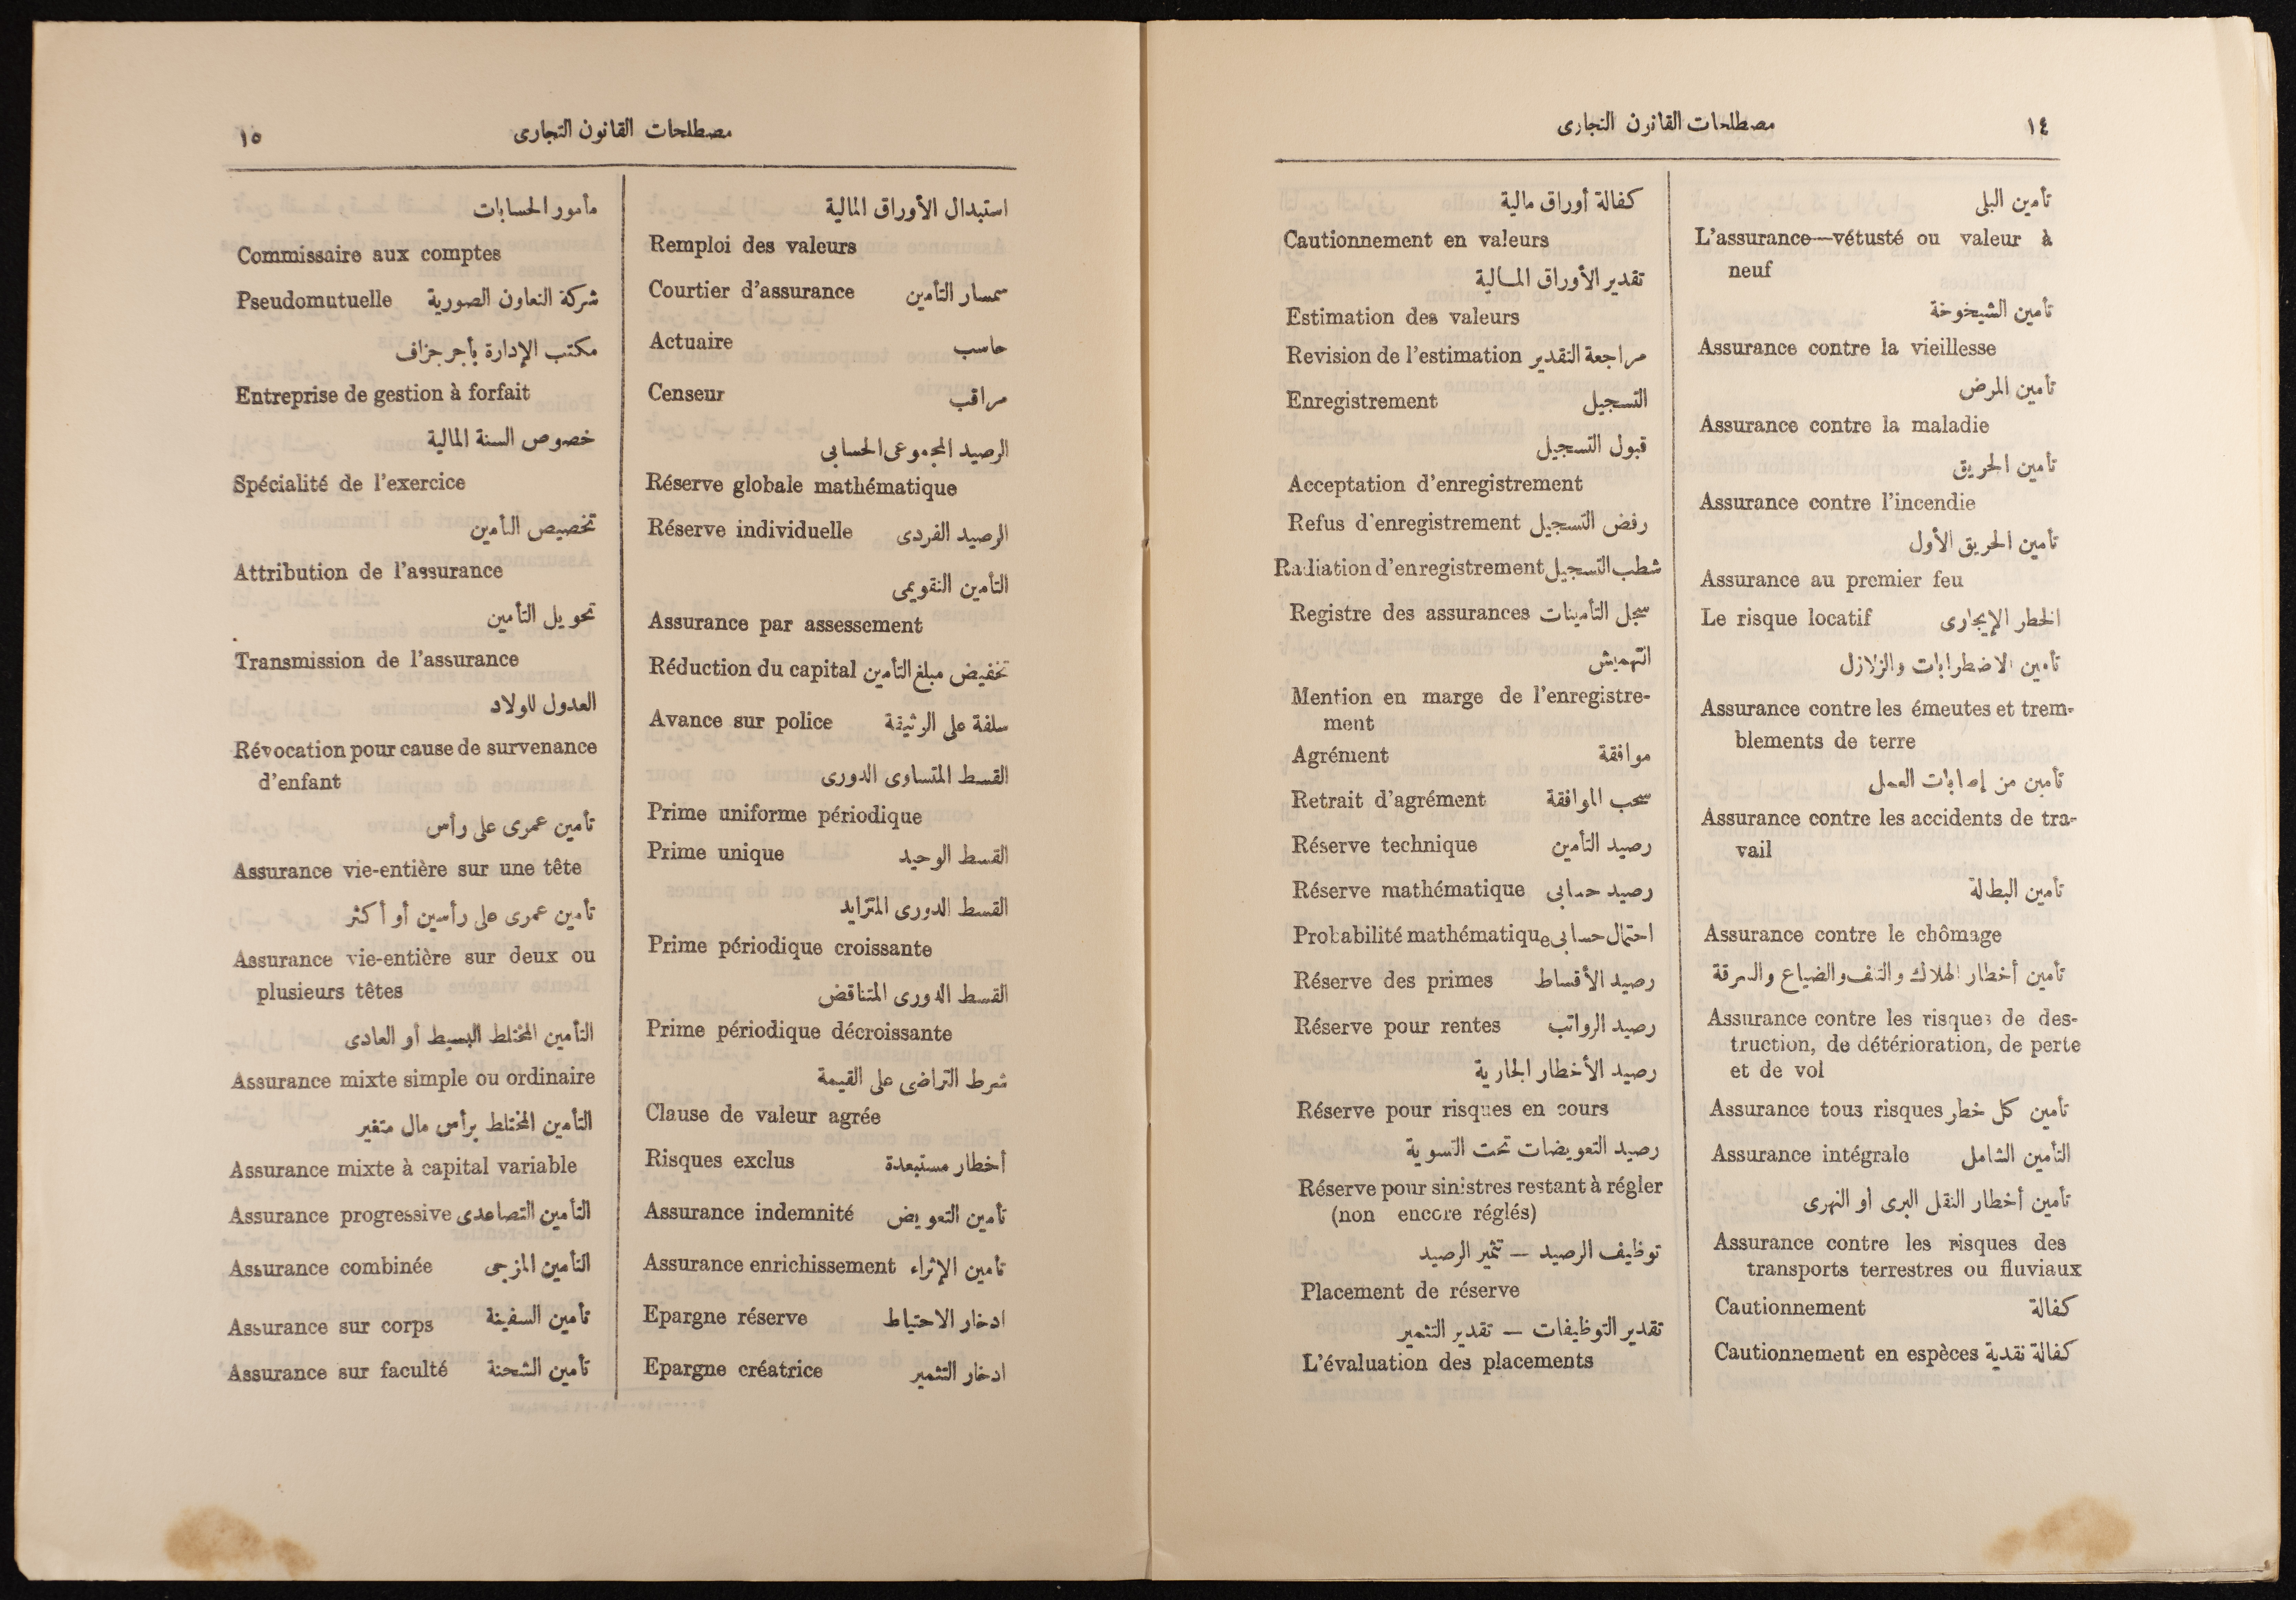 ١٤
مصطلحات القانون التجارى
تأمين البلى
L'assurance—vétusté ou valeur à
neuf
تأمين الشيخوخة
Assurance contre la vieillesse
تأمين المرض
Assurance contre la maladie
تأمين الحريق
Assurance contre l'incendie
تأمين الحريق الأول
Assurance au premier feu
Le risque locatif الخطر الإيجارى
تأمين الاضطرابات والزلازل
Assurance contre les émeutes et trem-
blements de terre
تأمين من إصابات العمل
Assurance contre les accidents de tra-
vail
تأمين البطالة
Assurance contre le chômage
تأمين أخطار الهلاك والتلف والضياع والسرقة
Assurance contre les risques de des-
truction, de détérioration, de perte
et de vol
Assurance tous risques تأمين كل خطر
Assurance intégrale التأمين الشامل
تأمين أخطار النقل البرى أو النهرى
Assurance contre les risques des
transports terrestres ou fluviaux
Cautionnement كفالة
Cautionnement en espèces كفالة نقدية
كفالة أوراق مالية
Cautionnement en valeurs
تقدير الأوراق المالية
Estimation des valeurs
Revision de l'estimation مراجعة التقدير
Enregistrement التسجيل
قبول التسجيل
Acceptation d'enregistrement
Refus d'enregistrement رفض التسجيل
Radiation d'enregistrement شطب التسجيل
Registre des assurances سجل التأمينات
التهميش
Mention en marge de l'enregistre-
ment
Agrément موافقة
Retrait d'agrément سحب الموافقة
Réserve technique رصيد التأمين
Réserve mathématique رصيد حسابى
Probabilité mathématique احتمال حسابى
Réserve des primes رصيد الأقساط
Réserve pour rentes رصيد الرواتب
رصيد الأخطار الجارية
Réserve pour risques en cours
رصيد التعويضات تحت التسوية
Réserve pour sinistres restant à régler
(non encore réglés)
توظيف الرصيد — تثمير الرصيد
Placement de réserve
تقدير التوظيفات — تقدير التثمير
L'évaluation des placements
مصطلحات القانون التجارى
١٥
استبدال الأوراق المالية
Remploi des valeurs
Courtier d'assurance سمسار التأمين
Actuaire حاسب
Censeur مراقب
الرصيد المجموعى الحسابى
Réserve globale mathématique
Réserve individuelle الرصيد الفردى
التأمين التقويمى
Assurance par assessement
Réduction du capital تخفيض مبلغ التأمين
Avance sur police سلفة على الوثيقة
القسط المتساوى الدورى
Prime uniforme périodique
Prime unique القسط الوحيد
القسط الدورى المتزايد
Prime périodique croissante
القسط الدورى المتناقض
Prime périodique décroissante
شرط التراضى على القيمة
Clause de valeur agrée
Risques exclus أخطار مستبعدة
Assurance indemnité تأمين التعويض
Assurance enrichissement تأمين الإثراء
Epargne réserve ادخار الاحتياط
Epargne créatrice ادخار التثمير
مأمور الحسابات
Commissaire aux comptes
Pseudomutuelle شركة التعاون الصورية
مكتب الإدارة بأجر جزاف
Entreprise de gestion à forfait
خصوص السنة المالية
Spécialité de l'exercice
تخصيص التأمين
Attribution de l'assurance
تحويل التأمين
Transmission de l'assurance
العدول للولاد
Révocation pour cause de survenance
d'enfant
تأمين عمرى على رأس
Assurance vie-entière sur une tête
تأمين عمرى على رأسين أو أكثر
Assurance vie-entière sur deux ou
plusieurs têtes
التأمين المختلط البسيط أو العادى
Assurance mixte simple ou ordinaire
التأمين المختلط برأس مال متغير
Assurance mixte à capital variable
Assurance progressive التأمين التصاعدى
Assurance combinée التأمين المزجى
Assurance sur corps تأمين السفينة
Assurance sur faculté تأمين الشحنة